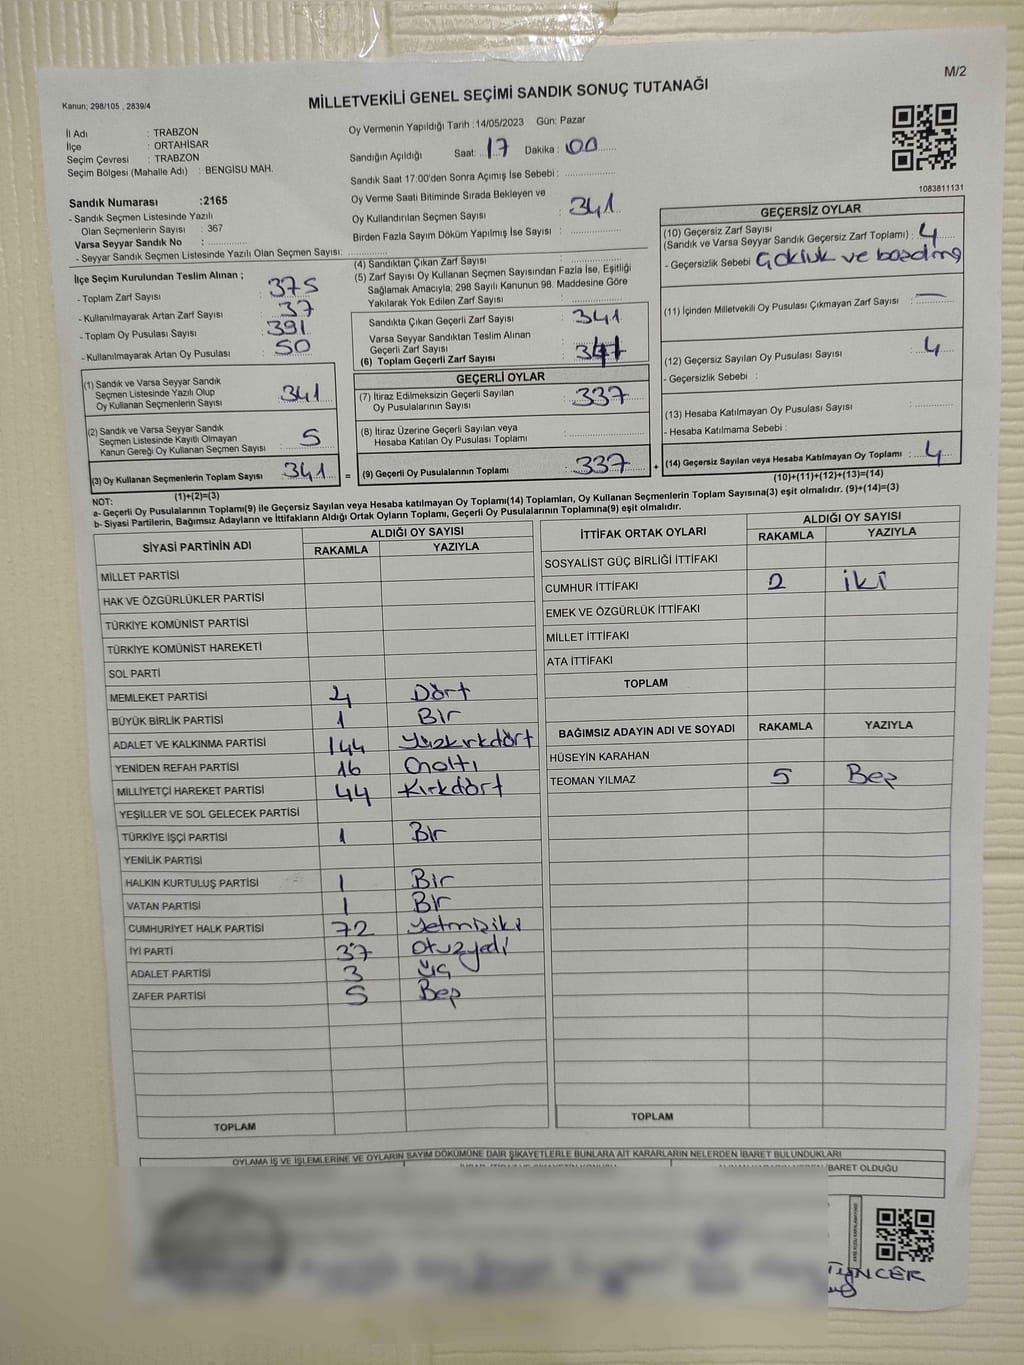 M/2
Kanun; 298/105 , 2839/4
MİLLETVEKİLİ GENEL SEÇİMİ SANDIK SONUÇ TUTANAĞI
İl Adı : TRABZON
İlçe : ORTAHİSAR
Seçim Çevresi : TRABZON
Seçim Bölgesi (Mahalle Adı) : BENGİSU MAH.
Sandık Numarası :2165
- Sandık Seçmen Listesinde Yazılı
Olan Seçmenlerin Sayısı : 367
Varsa Seyyar Sandık No :
- Seyyar Sandık Seçmen Listesinde Yazılı Olan Seçmen Sayısı:
Oy Vermenin Yapıldığı Tarih :14/05/2023 Gün: Pazar
Sandığın Açıldığı Saat: 17 Dakika : 00
Sandık Saat 17:00'den Sonra Açımış İse Sebebi :
Oy Verme Saati Bitiminde Sırada Bekleyen ve
Oy Kullandırılan Seçmen Sayısı : 341
Birden Fazla Sayım Döküm Yapılmış İse Sayısı :
1083811131
İlçe Seçim Kurulundan Teslim Alınan ;
- Toplam Zarf Sayısı : 375
- Kullanılmayarak Artan Zarf Sayısı : 37
- Toplam Oy Pusulası Sayısı : 391
- Kullanılmayarak Artan Oy Pusulası : 50
(1) Sandık ve Varsa Seyyar Sandık
Seçmen Listesinde Yazılı Olup
Oy Kullanan Seçmenlerin Sayısı : 341
(2) Sandık ve Varsa Seyyar Sandık
Seçmen Listesinde Kayıtlı Olmayan
Kanun Gereği Oy Kullanan Seçmen Sayısı : 5
(3) Oy Kullanan Seçmenlerin Toplam Sayısı : 341
(1)+(2)=(3)
(4) Sandıktan Çıkan Zarf Sayısı :
(5) Zarf Sayısı Oy Kullanan Seçmen Sayısından Fazla İse, Eşitliği
Sağlamak Amacıyla; 298 Sayılı Kanunun 98. Maddesine Göre
Yakılarak Yok Edilen Zarf Sayısı :
Sandıkta Çıkan Geçerli Zarf Sayısı : 341
Varsa Seyyar Sandıktan Teslim Alınan
Geçerli Zarf Sayısı :
(6) Toplam Geçerli Zarf Sayısı : 341
GEÇERLİ OYLAR
(7) İtiraz Edilmeksizin Geçerli Sayılan
Oy Pusulalarının Sayısı : 337
(8) İtiraz Üzerine Geçerli Sayılan veya
Hesaba Katılan Oy Pusulası Toplamı :
= (9) Geçerli Oy Pusulalarının Toplamı : 337 +
GEÇERSİZ OYLAR
(10) Geçersiz Zarf Sayısı
(Sandık ve Varsa Seyyar Sandık Geçersiz Zarf Toplamı) : 4
- Geçersizlik Sebebi :
(11) İçinden Milletvekili Oy Pusulası Çıkmayan Zarf Sayısı : —
(12) Geçersiz Sayılan Oy Pusulası Sayısı : 4
- Geçersizlik Sebebi :
(13) Hesaba Katılmayan Oy Pusulası Sayısı :
- Hesaba Katılmama Sebebi :
(14) Geçersiz Sayılan veya Hesaba Katılmayan Oy Toplamı : 4
(10)+(11)+(12)+(13)=(14)
NOT:
a- Geçerli Oy Pusulalarının Toplamı(9) ile Geçersiz Sayılan veya Hesaba katılmayan Oy Toplamı(14) Toplamları, Oy Kullanan Seçmenlerin Toplam Sayısına(3) eşit olmalıdır. (9)+(14)=(3)
b- Siyasi Partilerin, Bağımsız Adayların ve İttifakların Aldığı Ortak Oyların Toplamı, Geçerli Oy Pusulalarının Toplamına(9) eşit olmalıdır.
SİYASİ PARTİNİN ADI ALDIĞI OY SAYISI
RAKAMLA YAZIYLA
MİLLET PARTİSİ
HAK VE ÖZGÜRLÜKLER PARTİSİ
TÜRKİYE KOMÜNİST PARTİSİ
TÜRKİYE KOMÜNİST HAREKETİ
SOL PARTİ
MEMLEKET PARTİSİ 4 Dört
BÜYÜK BİRLİK PARTİSİ 1 Bir
ADALET VE KALKINMA PARTİSİ 144 Yüzkırkdört
YENİDEN REFAH PARTİSİ 16 Onaltı
MİLLİYETÇİ HAREKET PARTİSİ 44 Kırkdört
YEŞİLLER VE SOL GELECEK PARTİSİ
TÜRKİYE İŞÇİ PARTİSİ 1 Bir
YENİLİK PARTİSİ
HALKIN KURTULUŞ PARTİSİ 1 Bir
VATAN PARTİSİ 1 Bir
CUMHURİYET HALK PARTİSİ 72 Yetmişiki
İYİ PARTİ 37 Otuzyedi
ADALET PARTİSİ 3 Üç
ZAFER PARTİSİ 5 Beş
TOPLAM
İTTİFAK ORTAK OYLARI ALDIĞI OY SAYISI
RAKAMLA YAZIYLA
SOSYALİST GÜÇ BİRLİĞİ İTTİFAKI
CUMHUR İTTİFAKI 2 iki
EMEK VE ÖZGÜRLÜK İTTİFAKI
MİLLET İTTİFAKI
ATA İTTİFAKI
TOPLAM
BAĞIMSIZ ADAYIN ADI VE SOYADI RAKAMLA YAZIYLA
HÜSEYİN KARAHAN
TEOMAN YILMAZ 5 Beş
TOPLAM
OYLAMA İŞ VE İŞLEMLERİNE VE OYLARIN SAYIM DÖKÜMÜNE DAİR ŞİKAYETLERLE BUNLARA AİT KARARLARIN NELERDEN İBARET BULUNDUKLARI
İBARET OLDUĞU
TUNCER